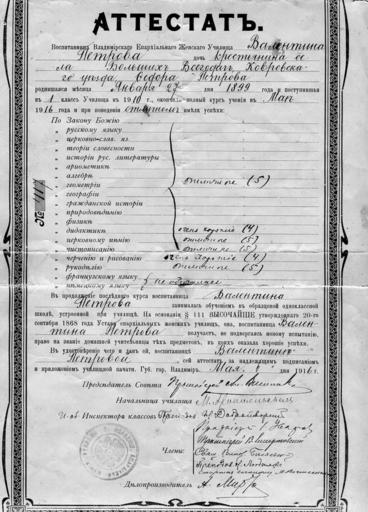 АТТЕСТАТЪ.
Воспитанница Владимірскаго Епархіальнаго Женскаго Училища Валентина
Петрова дочь крестьянина се
ла Большихъ Всегодичъ, Ковровска-
го уѣзда Ѳедора Петрова
родившаяся мѣсяца Января 27 дня 1899 года и поступившая
въ 1 классъ Училища въ 1910 г., окончила полный курсъ ученія въ Маѣ
1916 года и при поведеніи отличномъ имѣетъ успѣхи:
По Закону Божію
„ русскому языку
„ церковно-слав. яз.
„ теоріи словесности
„ исторіи рус. литературы
„ ариѳметикѣ
„ алгебрѣ
„ геометріи отличные (5)
„ географіи
„ гражданской исторіи
„ природовѣдѣнію
„ физикѣ
„ дидактикѣ очень хорошіе (4)
„ церковному пѣнію отличные (5)
„ чистописанію отличные (5)
„ черченію и рисованію очень хорошіе (4)
„ рукодѣлію отличные (5)
„ французскому языку
„ нѣмецкому языку не обучалась
№
Въ продолженіе послѣдняго курса воспитанница Валентина
Петрова занималась обученіемъ въ образцовой одноклассной
школѣ, устроенной при училищѣ. На основаніи § 111 ВЫСОЧАЙШЕ утвержденнаго 20-го
сентября 1868 года Устава епархіальныхъ женскихъ училищъ, она, воспитанница Вален-
тина Петрова получаетъ, не подвергаясь новому испытанію,
право на званіе домашней учительницы тѣхъ предметовъ, въ коихъ оказала хорошіе успѣхи.
Въ удостовѣреніе чего и данъ ей, воспитанницѣ Валентинѣ
Петровой сей аттестатъ, за надлежащимъ подписаніемъ
и приложеніемъ училищной печати. Губ. гор. Владиміръ. Мая 1916 г.
Предсѣдатель Совѣта
Начальница училища
И. об. Инспектора классовъ
Члены:
Дѣлопроизводитель